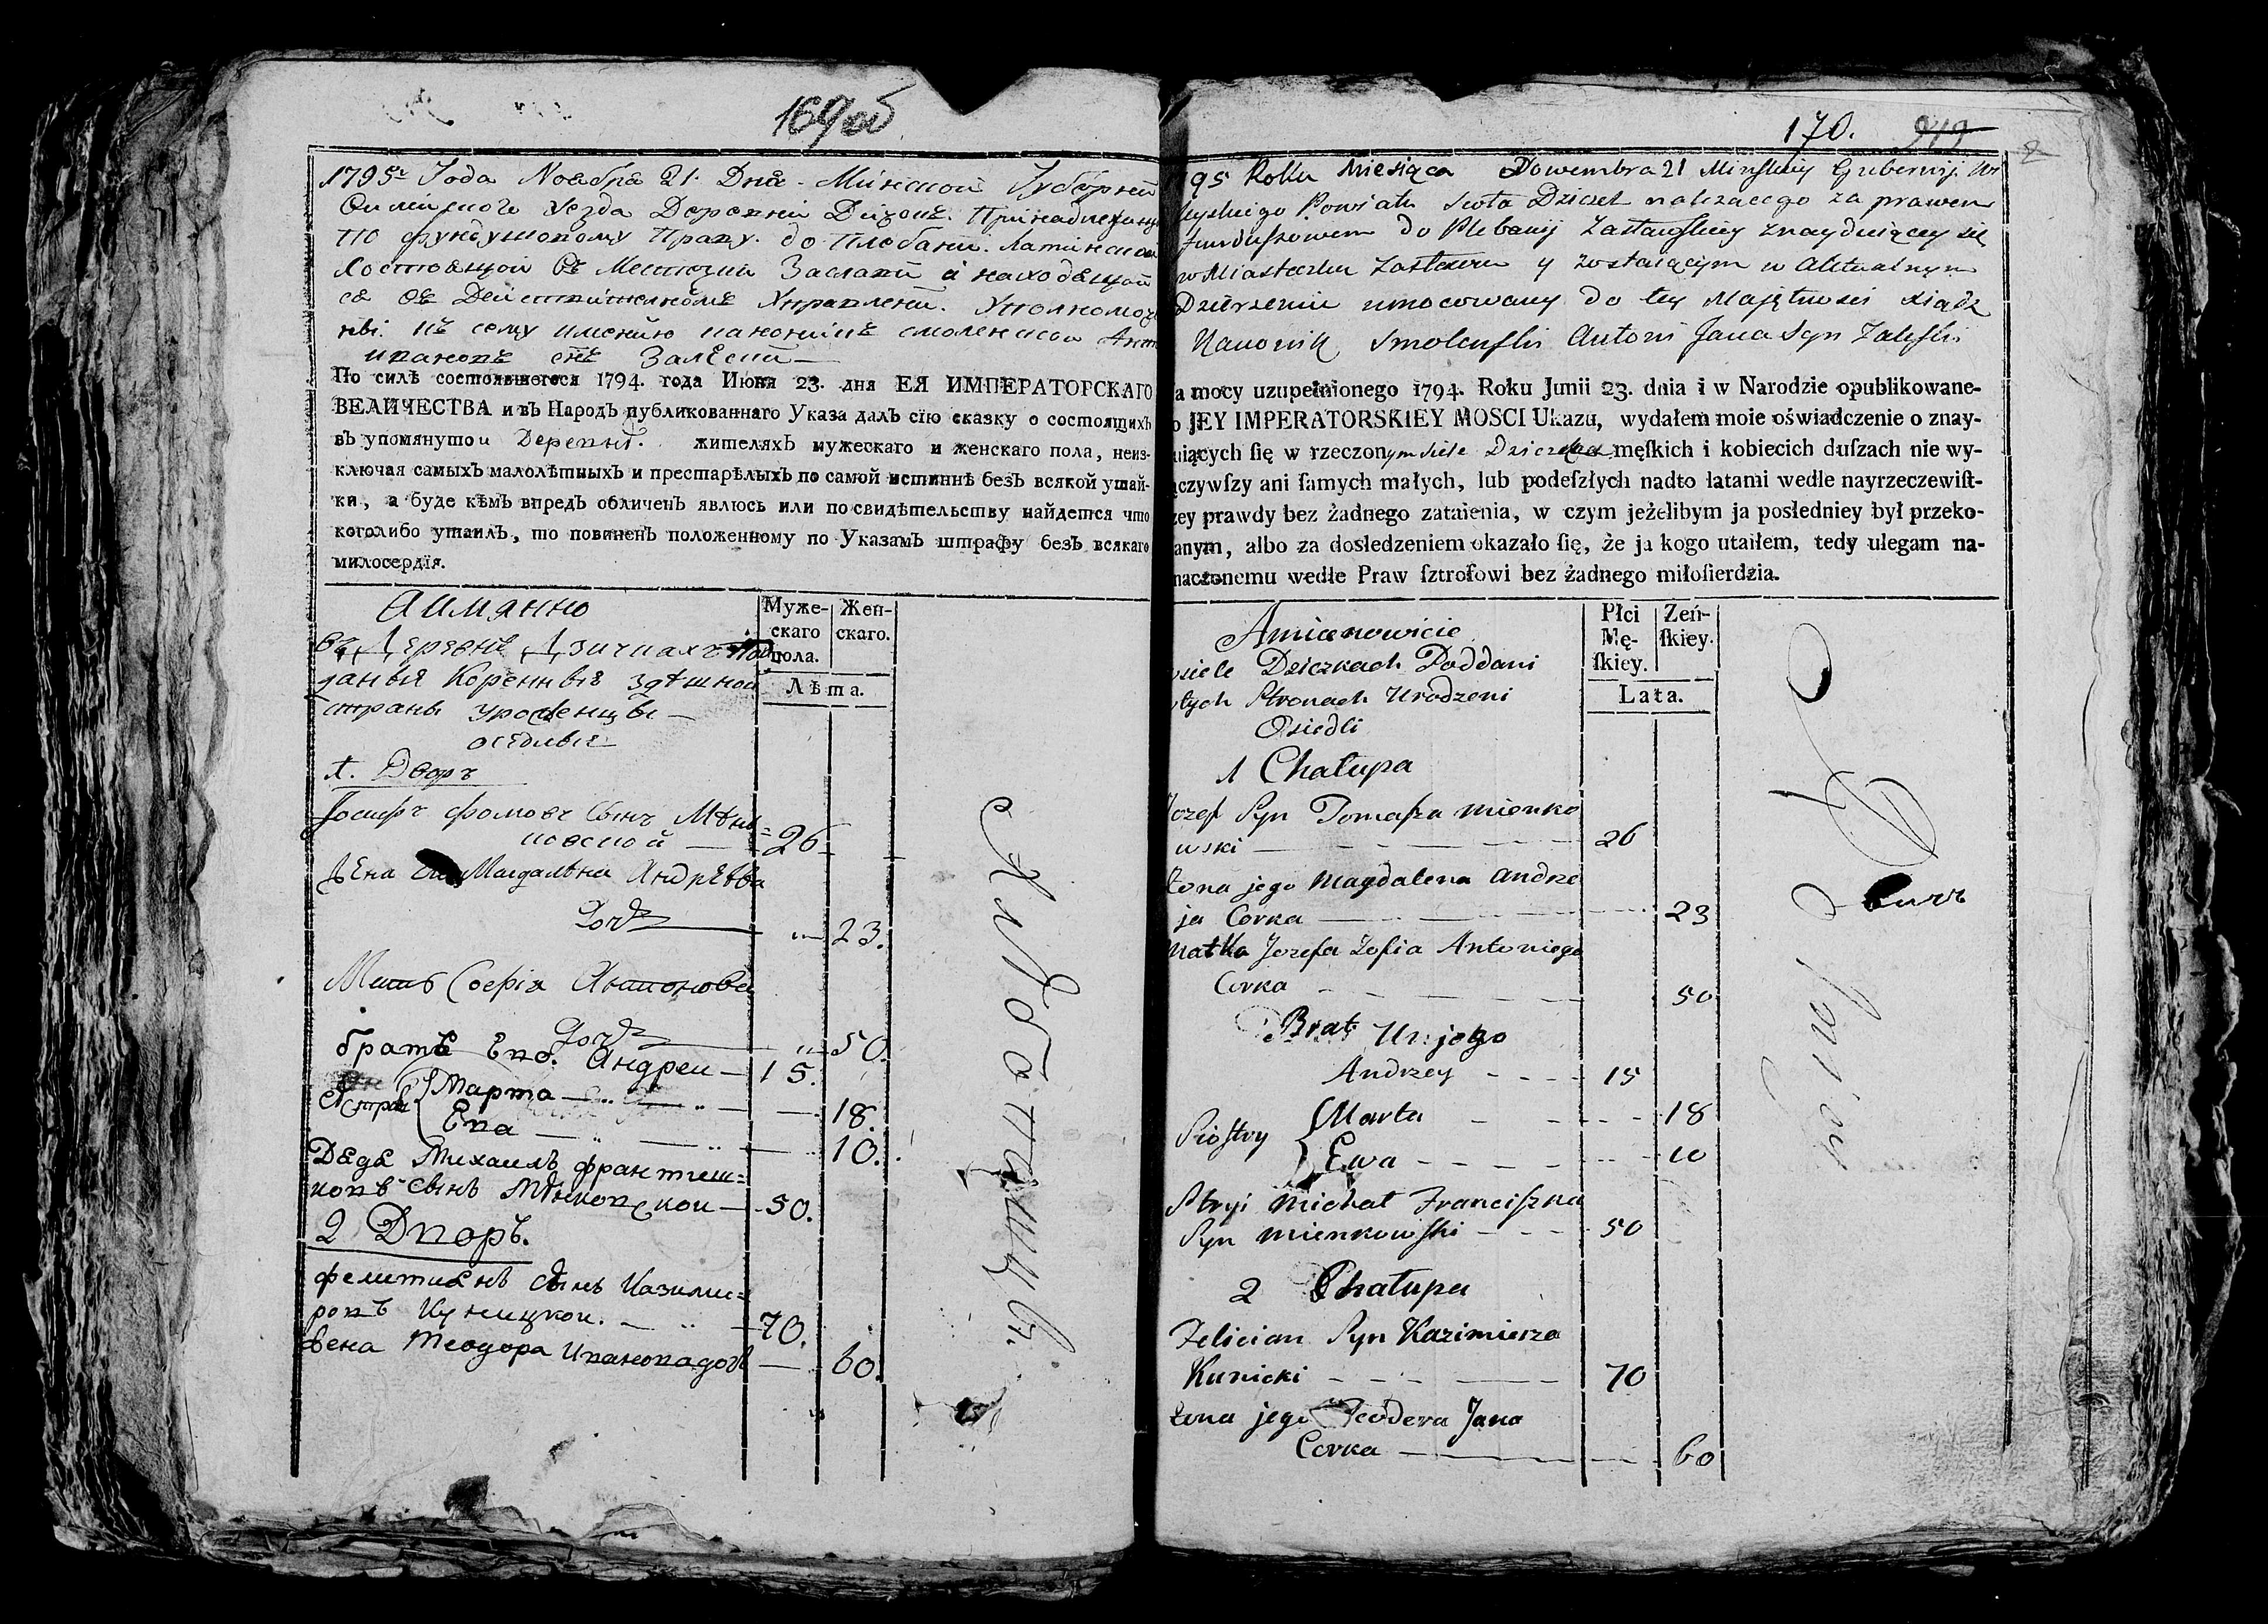 169об
1795г Года Ноября 21. Дня. Минской Губернии
уезда Деревни Принадлежащ
По фундушовому Праву. до Плебании. Латинской
состоящой въ Местечки Заслави и находящой
ся въ Действителномъ Управлении.
къ сему имению каноникъ смоленской
ивановъ снъ Залеский
По силѣ состоявшегося 1794. года Июня 23. дня ЕЯ ИМПЕРАТОРСКАГО
ВЕЛИЧЕСТВА и въ Народъ публикованнаго Указа далъ сїю сказку о состоящихъ
въ упомянутои Деревни. жителяхъ мужескаго и женскаго пола, неиз-
ключая самыхъ малолѣтныхъ и престарѣлыхъ по самой истиннѣ безъ всякой утай-
ки, а буде кѣмъ впредь обличенъ явлюсь или по свидѣтельству найдется что
коголибо утаилъ, то повиненъ положенному по Указамъ штрафу безъ всякаго
милосердїя.
Аимянно
Муже-
скаго
пола.
Жен-
скаго.
Лѣта.
въ Деревне Дзичкахъ Под
даныя Коренныя здѣшной
страны уроженцы
оседлые
1. Дворъ
Иосифъ фомовъ Сынъ Мѣнь=
ковской 26
Жена Магдалѣна Андрѣева
Дочь 23.
Мать Софія Антонова
Дочь 50.
братъ Его. Андреи 15.
Сестры Марта 18.
Ева 10.
Дядя Михаилъ францеш=
ковъ Сынъ Мѣньковскои 50.
2 Дворъ.
фелициянъ Сынъ Казими=
ровъ Куницкои. 70.
Жена Теодора Иванова дочь 60.
170. 949
95 Roku Miesiąca Nowembra 21 Minskiey Gubernij
Powiatu Sioła Dziczek należącego za prawem
funduszowem do Plebanij Zasławskiey znayduiącey się
w Miasteczku Zasławiu y zostaiącym w Aktualnym
Dzierżeniu umocowany do tey Maiętnosci Xiądz
Kanonik Smolenski Antoni Jana Syn Zaleski
a mocy uzupełnionego 1794. Roku Junii 23. dnia i w Narodzie opublikowane-
o JEY IMPERATORSKIEY MOSCI Ukazu, wydałem moie oświadczenie o znay-
uiących ſię w rzeczonym siele Dziczkach męſkich i kobiecich duſzach nie wy-
ączywſzy ani ſamych małych, lub podeſzłych nadto latami wedle nayrzeczewiſt-
zey prawdy bez żadnego zataienia, w czym jeżelibym ja posłedniey był przeko-
anym, albo za dosledzeniem okazało ſię, że ja kogo utaiłem, tedy ulegam na-
naczonemu wedle Praw ſztrofowi bez żadnego miłoſierdzia.
Amianowicie
Płci
Mę-
ſkiey.
Zeń-
ſkiey.
Lata.
siele Dziczkach Poddani
tych Stronach Urodzeni
Osiedli
1 Chałupa
Jozef Syn Tomasza Mienko
wski 26
Zona jego Magdalena Andrze
ja Corka 23
Matka Jozefa Zofia Antoniego
Corka 50
Brat jego
Andrzey 15
Siostry Marta 18
Ewa 10
Stryi Michał Franciszka
Syn Mienkowski 50
2 Chałupa
Felician Syn Kazimierza
Kunicki 70
Zona jego Teodora Jana
Corka 60